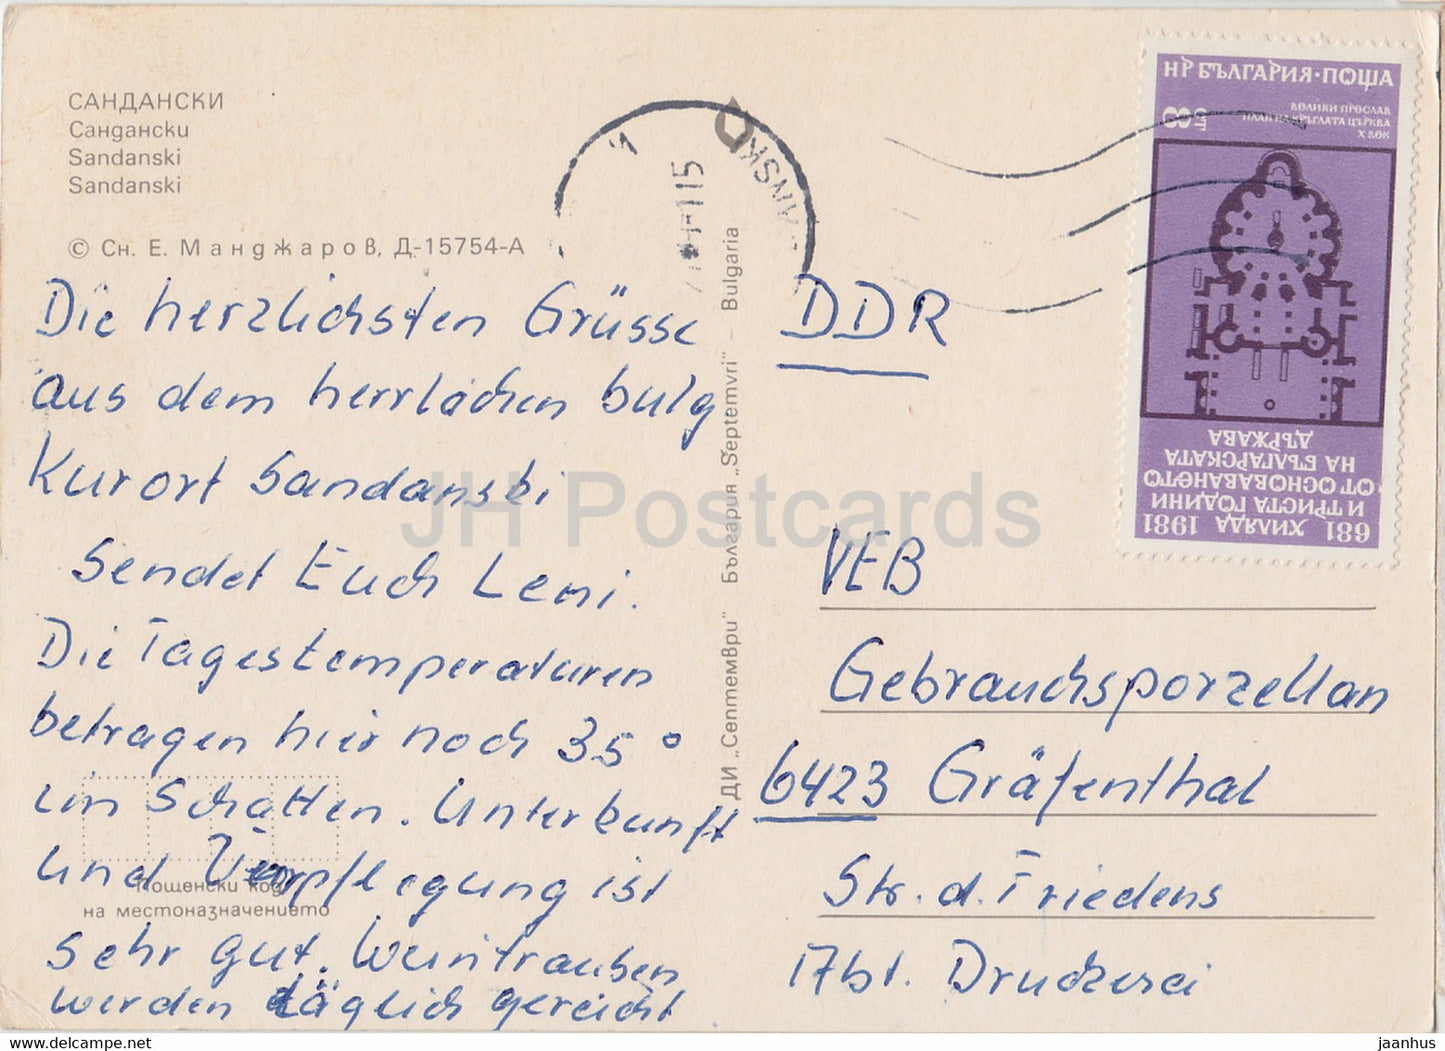 САНДАНСКИ
Сандански
Sandanski
Sandanski
© Сн. Е. Манджаров, Д-15754-А
Die herzlichsten Grüsse
aus dem herrlichen bulg
Kurort Sandanski
Sendet Euch Leni.
Die Tagestemperaturen
betragen hier noch 35°
im Schatten. Unterkunft
und Verpflegung ist
sehr gut. Weintrauben
werden täglich gereicht
Пощенски код
на местоназначението
ДИ „Септември" България „Septemvri" - Bulgaria
НР БЪЛГАРИЯ·ПОЩА
8 СТ
ВЕЛИКИ ПРЕСЛАВ
ПЛАН НА КРЪГЛАТА ЦЪРКВА
X ВЕК
681 ХИЛЯДА 1981
И ТРИСТА ГОДИНИ
ОТ ОСНОВАВАНЕТО
НА БЪЛГАРСКАТА
ДЪРЖАВА
DDR
VEB
Gebrauchsporzellan
6423 Gräfenthal
Str. d. Friedens
Abt. Druckerei
JH Postcards
www.delcampe.net
jaanhus